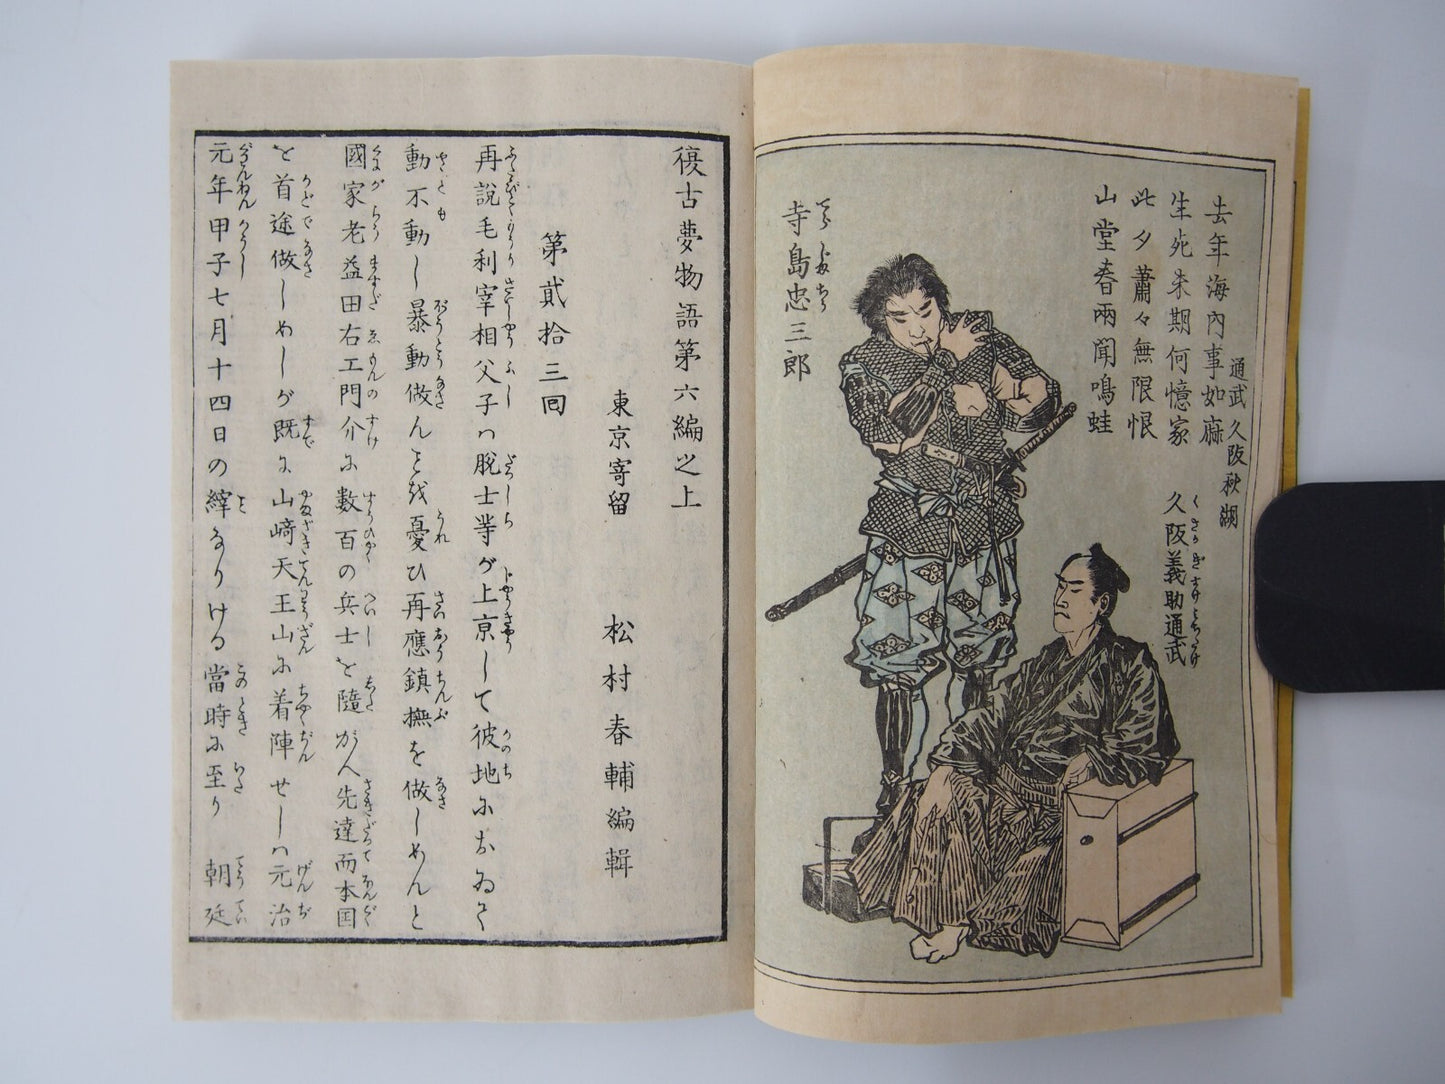 去年海內事如麻
生死未期何憶家
此夕蕭々無限恨
山堂春雨聞鳴蛙
通武久阪秋湖
久阪義助通武
寺島忠三郎
復古夢物語第六編之上
東京寄留 松村春輔編輯
第貳拾三囘
再說毛利宰相父子ハ脫士等が上京して彼地におゐて
動不動し暴動做んとを憂ひ再應鎭撫を做しめんと
國家老益田右エ門介に數百の兵士を隨がへ先達而本国
を首途做しめしが既に山﨑天王山に着陣せしハ元治
元年甲子七月十四日の縡なりける當時に至り 朝廷